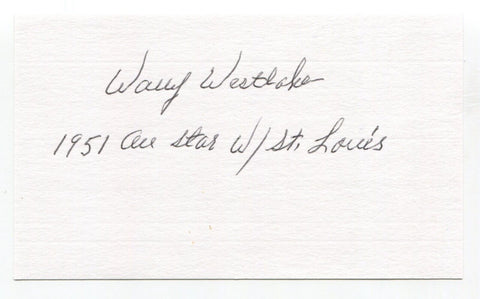 Wally Westlake
1951 All Star W/ St. Louis